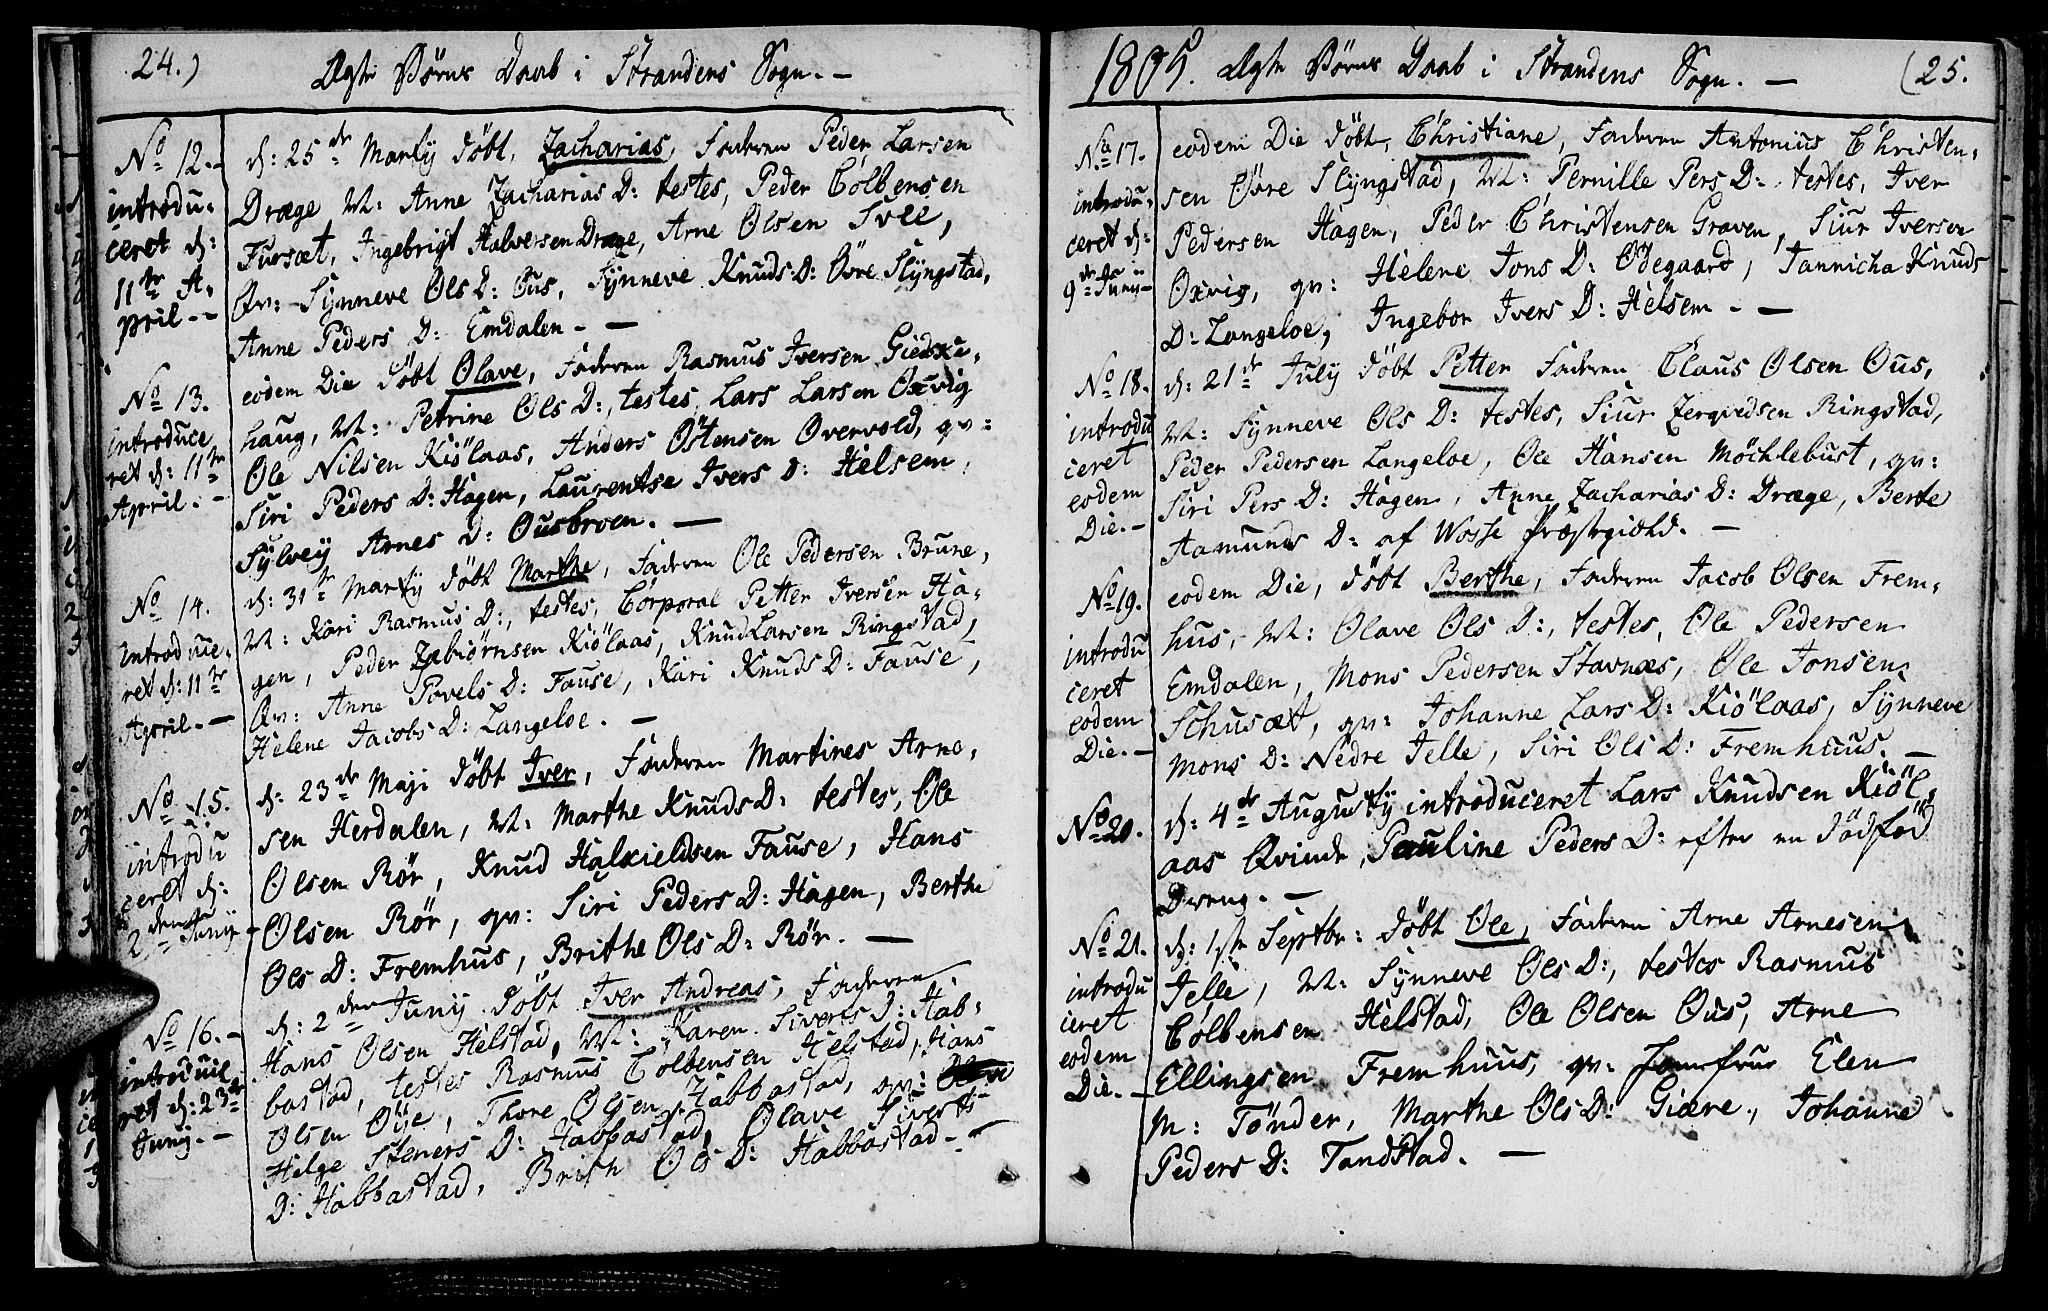 24.) Ægte Börns Daab i Strandens Sogn. -
No 12. -
introdu-
ceret d:
11te A-
pril. -
d: 25de Martij döbt, Zacharias, Faderen Peder Larsen
Dræge M: Anne Zacharias D: testes, Peder Colbensen
Fursæt, Ingebrigt Halversen Dræge, Arne Olsen Svee,
Qv: Synneve Ols D: Ous, Synneve Knuds D: Övre Slyngstad,
Anne Peders D: Emdalen. -
No 13.
introduce
ret d: 11te
April. -
eodem Die döbt Olave, Faderen Rasmus Iversen Giedske-
haug, M: Petrine Ols D:, testes, Lars Larsen Oxvig
Ole Nilsen Kiölaas, Anders Östensen Overvold, qv:
Siri Peders D: Hagen, Laurentse Ivers D: Helsem,
Sylvej Arnes D: Ousbroen. -
No 14.
introduce-
ret d: 11te
April. -
d: 31te Martij döbt Marthe, Faderen Ole Pedersen Brune,
M: Kari Rasmus D:, testes, Corporal Petter Iversen Ha-
gen, Peder Zabiörnsen Kiölaas, Knud Larsen Ringstad,
Qv: Anne Povels D: Fause, Kari Knuds D: Fause,
Helene Jacobs D: Langeloe. -
No 15.
introdu
ceret d:
2den Juny -
d: 23de Maji döbt Iver, Faderen Martines Arne-
sen Herdalen, M: Marthe Knuds D: testes, Ole
Olsen Rör, Knud Halkieldsen Fause, Hans
Olsen Rör, qv: Siri Peders D: Hagen, Berthe
Ols D: Fremhus, Brithe Ols D: Rör. -
No 16. -
introduce
ret d: 23de
Juny. -
d: 2den Juny döbt Iver Andreas, Faderen
Hans Olsen Helstad, M: Karen Siverts D: Hab-
bastad, testes Rasmus Colbensen Helstad, Hans
Olsen Öye, Thore Olsen Habbastad, qv:
Helge Steners D: Habbastad, Olave Siverts
D: Habbastad, Brith Ols D: Habbastad. -
1805. Ægte Börns Daab i Strandens Sogn. - (25.
No 17.
introdu-
ceret d:
9de Juny -
eodem Die döbt, Christiane, Faderen Antonius Christen-
sen Övre Slyngstad, M: Pernille Pers D: testes, Iver
Pedersen Hagen, Peder Christensen Graven, Siur Iversen
Oxvig, qv: Helene Jons D: Ödegaard, Jannicha Knuds
D: Langeloe, Ingebor Ivers D: Helsem. -
No 18.
introdu
ceret
eodem
Die. -
d: 21de July döbt Petter Faderen Claus Olsen Ous,
M: Synneve Ols D: testes, Siur Zergvedsen Ringstad,
Peder Pedersen Langeloe, Ole Hansen Möchlebust, qv:
Siri Pers D: Hagen, Anne Zacharias D: Dræge, Berte
Aamunds D: af Wosse Præstegield. -
No 19.
introdu
ceret
eodem
Die. -
eodem Die, döbt Berthe, Faderen Jacob Olsen Frem-
hus, M: Olave Ols D:, testes, Ole Pedersen
Emdalen, Mons Pedersen Stavnæs, Ole Jonsen
Schusæt, qv: Johanne Lars D: Kiölaas, Synneve
Mons D: Nedre Jelle, Siri Ols D: Fremhuus. -
No 20.
d: 4de Augustij introduceret Lars Knudsen Kiöl-
aas Qvinde, Pauline Peders D: efter en dödföd
Dreng. -
No 21.
introdu
ceret
eodem
Die. -
d: 1ste Septbr: döbt Ole, Faderen Arne Arnesen
Jelle, M: Synneve Ols D:, testes Rasmus
Colbensen Helstad, Ole Olsen Ous, Arne
Ellingsen Fremhuus, qv: Jomfrue Elen
M: Tönder, Marthe Ols D: Giære, Johanne
Peders D: Tandstad. -